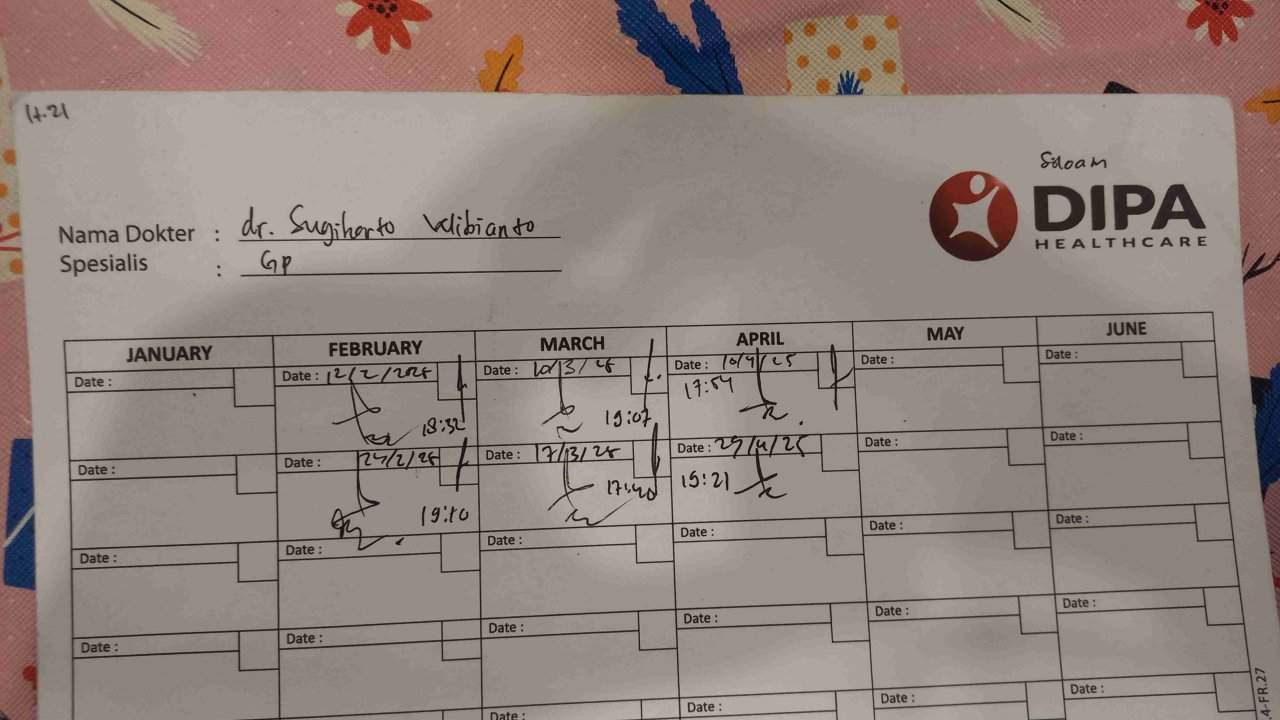 17.21
Siloam
DIPA
HEALTHCARE
Nama Dokter : dr. Sugiharto Wibianto
Spesialis : GP
JANUARY FEBRUARY MARCH APRIL MAY JUNE
Date : Date : 12/2/2025 Date : 10/3/25 Date : 10/4/25 Date : Date :
18:32 19:07 17:54
Date : Date : 24/2/25 Date : 17/3/25 Date : 29/4/25 Date : Date :
19:10 17:40 15:21
Date : Date : Date : Date : Date : Date :
Date : Date : Date : Date : Date : Date :
Date : Date : Date : Date :
4-FR.27